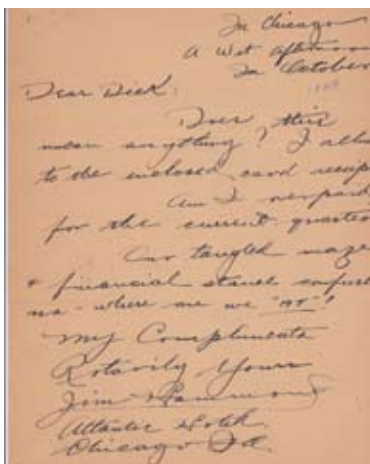 In Chicago
A Wet afternoon
In October
Dear Dick,
Does this
mean anything? I allu
to the enclosed card recip
Am I overpaid
for the current quarter
Our tangled maze
financial confus
me - where are we "at"?
My Compliments
Rotarily Yours
Jim Hammond
Atlantic Hotel
Chicago Ill.